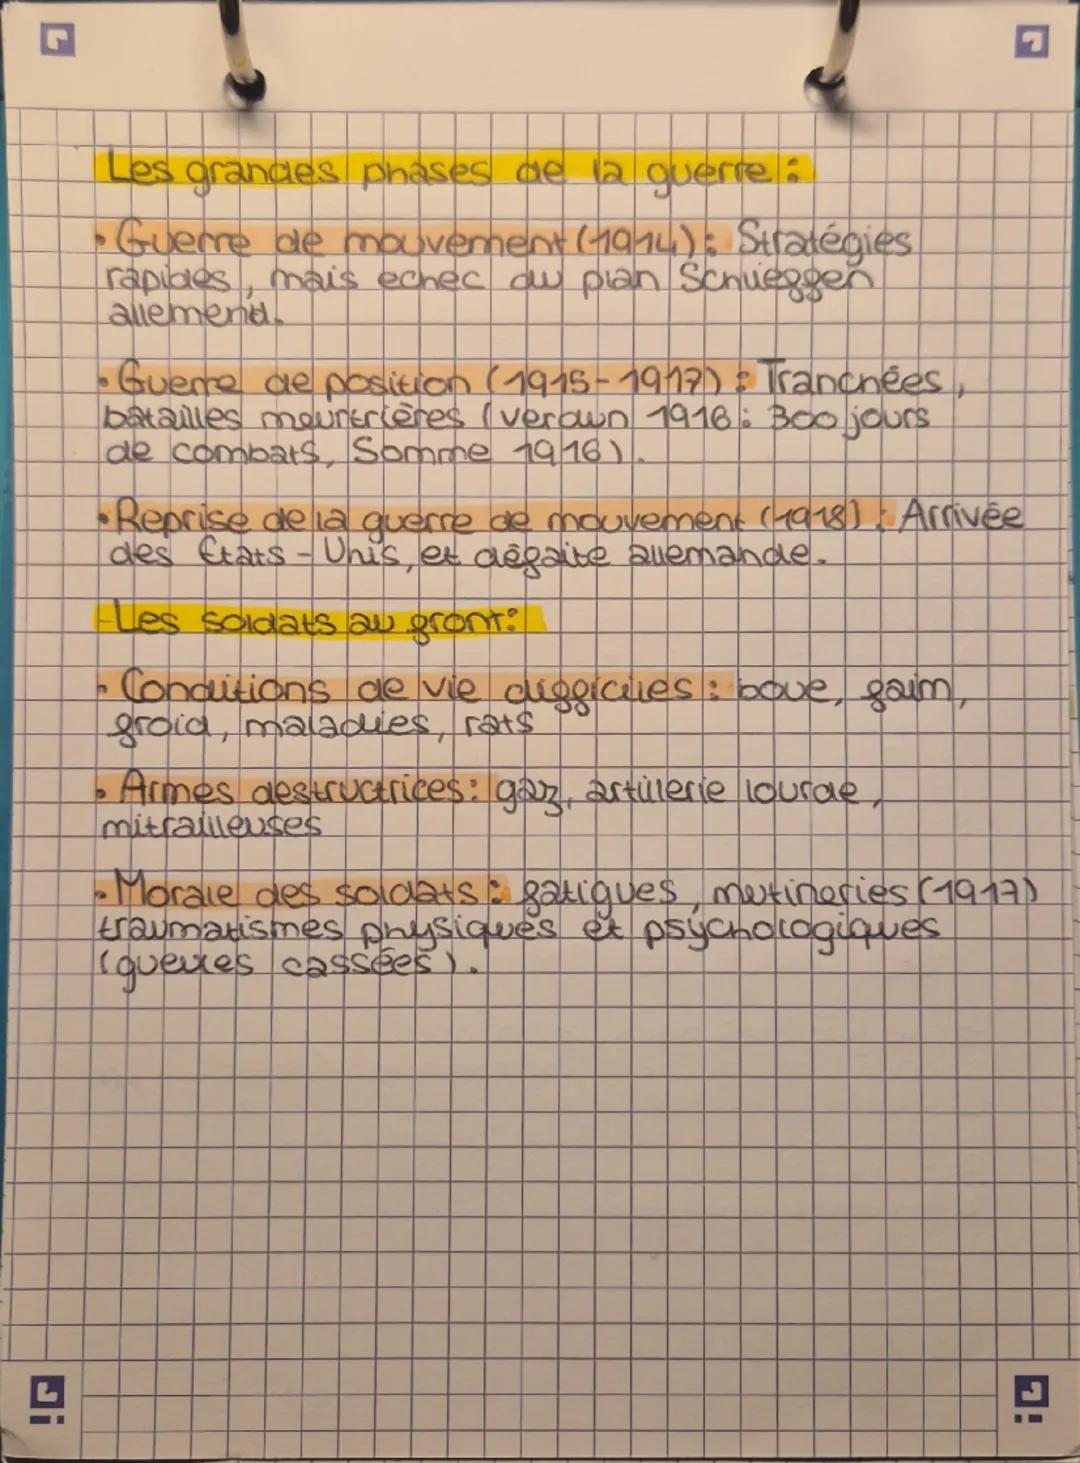 Les grandes phases de la guerre :
• Guerre de mouvement (1914) : Stratégies
rapides, mais echec du plan Schlieffen
allemend.
• Guerre de position (1915-1917) : Tranchées,
batailles meurtrières (verdun 1916 : 300 jours
de combats, Somme 1916).
• Reprise de la guerre de mouvement (1918) : Arrivée
des États-Unis, et défaite allemande.
- Les soldats au front :
• Conditions de vie difficiles : boue, faim,
froid, maladies, rats
• Armes destructrices : gaz, artillerie lourde,
mitrailleuses
• Morale des soldats : fatigues, mutineries (1917)
traumatismes physiques et psychologiques
(gueules cassées).